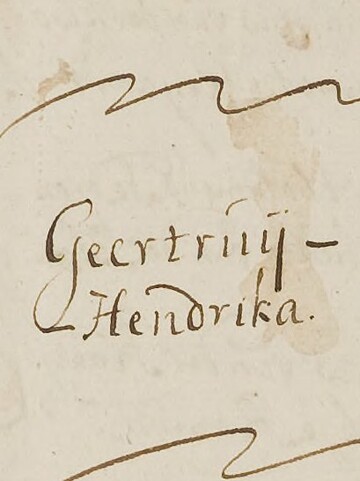 Geertruij-
Hendrika.